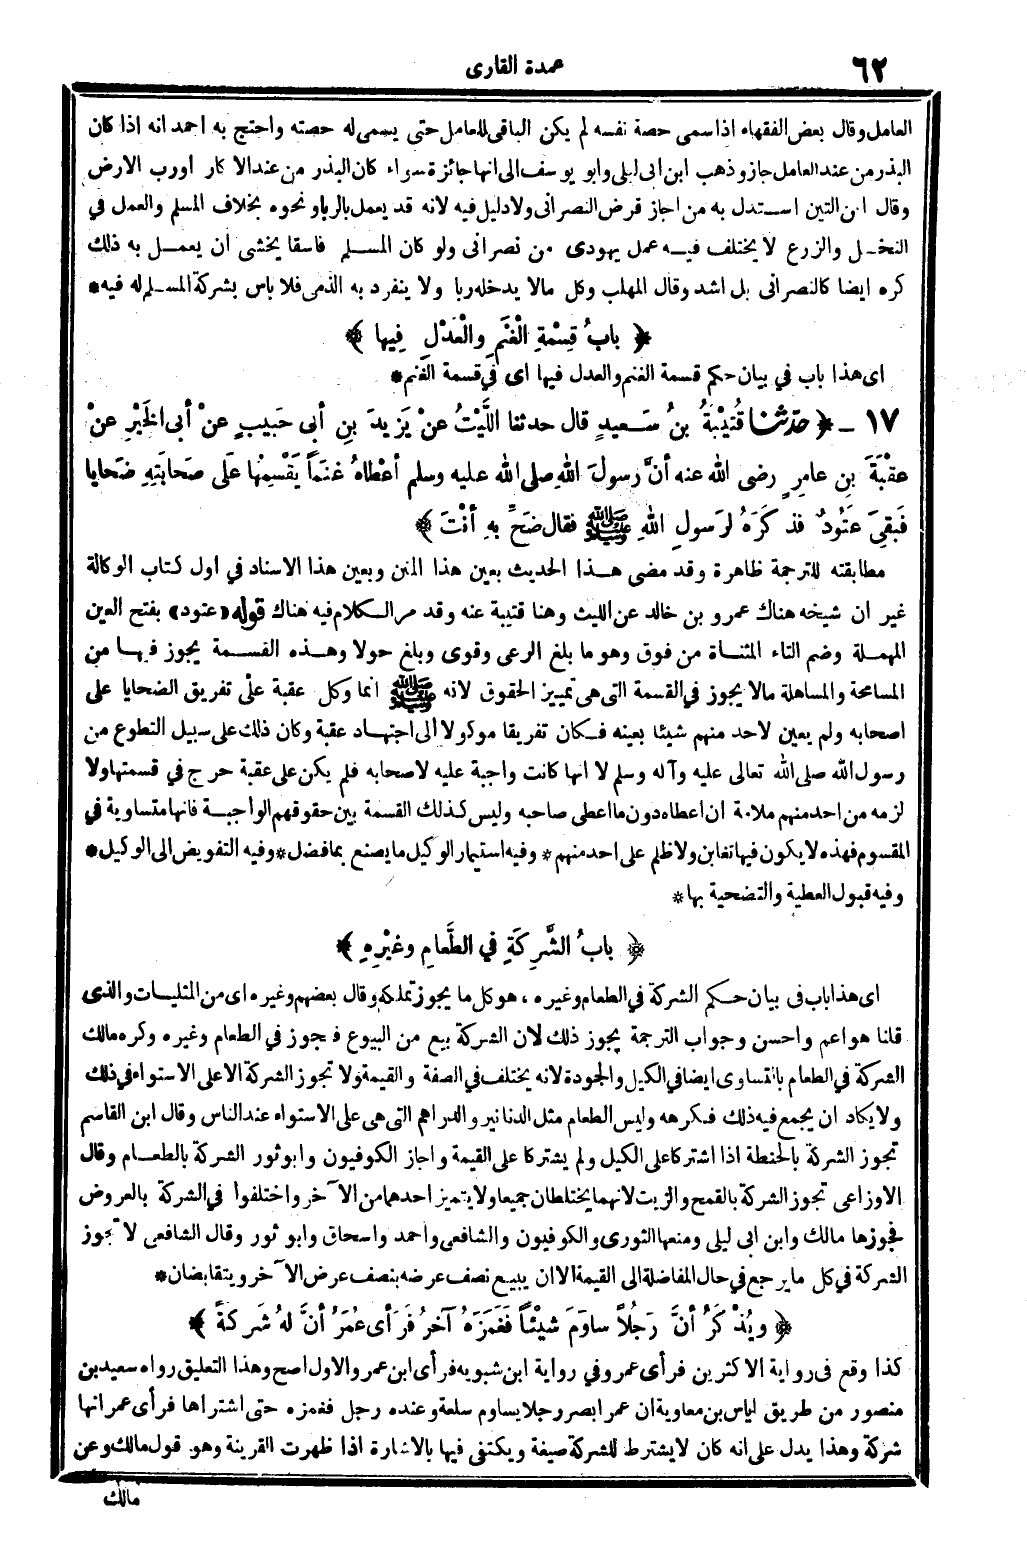 ٦٢
عمدة القارى
العامل وقال بعض الفقهاء اذا سمى حصة نفسه لم يكن الباقى للعامل حتى يسمى له حصته واحتج به احمد انه اذا كان
البذر من عند العامل جاز وذهب ابن ابى ليلى وابو يوسف الى انها جائزة سواء كان البذر من عند الاكار أو رب الارض
وقال ابن التين استدل به من اجاز قرض النصرانى ولا دليل فيه لانه قد يعمل بالربا ونحوه بخلاف المسلم والعمل في
النخل والزرع لا يختلف فيه عمل يهودى من نصرانى ولو كان المسلم فاسقا يخشى أن يعمل به ذلك
كره ايضا كالنصرانى بل اشد وقال المهلب وكل مالا يدخله ربا ولا ينفرد به الذمى فلا باس بشركة المسلم له فيه *
﴿ بابُ قِسْمَةِ الْغَنَمِ والْعَدْلِ فِيها ﴾
اى هذا باب في بيان حكم قسمة الغنم والعدل فيها اى في قسمة الغنم *
١٧ - ﴿ حدّثنا قُتَيْبَةُ بنُ سَعيدٍ قال حدثنا اللَّيْثُ عنْ يَزِيدَ بنِ أبي حَبيبٍ عنْ أبى الخَيْرِ عنْ
عقْبَةَ بنِ عامِرٍ رضى الله عنه أنَّ رسولَ اللهِ صلى الله عليه وسلم أعْطاهُ غنَماً يَقْسِمُها عَلَى صَحابَتِهِ ضَحايا
فَبَقِىَ عَتُودٌ فذَكَرَهُ لِرَسولِ اللهِ ﷺ فقال ضَحِّ بهِ أنْتَ ﴾
مطابقته للترجمة ظاهرة وقد مضى هذا الحديث بعين هذا المتن وبعين هذا الاسناد في اول كتاب الوكالة
غير ان شيخه هناك عمرو بن خالد عن الليث وهنا قتيبة عنه وقد مر الكلام فيه هناك قوله «عتود» بفتح العين
المهملة وضم التاء المثناة من فوق وهو ما بلغ الرعى وقوى وبلغ حولا وهذه القسمة يجوز فيها من
المسامحة والمساهلة مالا يجوز في القسمة التى هى تمييز الحقوق لانه ﷺ انما وكل عقبة على تفريق الضحايا على
اصحابه ولم يعين لاحد منهم شيئا بعينه فكان تفريقا موكولا الى اجتهاد عقبة وكان ذلك على سبيل التطوع من
رسول الله صلى الله تعالى عليه وآله وسلم لا انها كانت واجبة عليه لاصحابه فلم يكن على عقبة حرج في قسمتها ولا
لزمه من احد منهم ملامة ان اعطاه دون ما اعطى صاحبه وليس كذلك القسمة بين حقوقهم الواجبة فانها متساوية في
المقسوم فهذه لا يكون فيها تغابن ولا ظلم على احد منهم * وفيه استيمار الوكيل ما يصنع بما فضل * وفيه التفويض الى الوكيل *
وفيه قبول العطية والتضحية بها *
﴿ بابُ الشَّرِكَةِ في الطَّعامِ وغيْرِهِ ﴾
اى هذا باب فى بيان حكم الشركة في الطعام وغيره ، هو كل ما يجوز تملكه وقال بعضهم وغيره اى من المثليات والذى
قلنا هو اعم واحسن وجواب الترجمة يجوز ذلك لان الشركة بيع من البيوع فيجوز في الطعام وغيره وكره مالك
الشركة في الطعام بالتساوى ايضا في الكيل والجودة لانه يختلف في الصفة والقيمة ولا تجوز الشركة الا على الاستواء في ذلك
ولا يكاد ان يجمع فيه ذلك فكرهه وليس الطعام مثل الدنانير والدراهم التى هى على الاستواء عند الناس وقال ابن القاسم
تجوز الشركة بالحنطة اذا اشتركا على الكيل ولم يشتركا على القيمة واجاز الكوفيون وابو ثور الشركة بالطعام وقال
الاوزاعى تجوز الشركة بالقمح والزيت لانهما يختلطان جميعا ولا يتميز احدهما من الآخر واختلفوا في الشركة بالعروض
فجوزها مالك وابن ابى ليلى ومنعها الثورى والكوفيون والشافعى واحمد واسحاق وابو ثور وقال الشافعى لا تجوز
الشركة في كل ما يرجع في حال المفاضلة الى القيمة الا ان يبيع نصف عرضه بنصف عرض الآخر ويتقابضان *
﴿ ويُذْكَرُ أنَّ رَجُلاً ساوَمَ شيْئاً فغَمَزَهُ آخرُ فرَأى عُمَرُ أنَّ لهُ شَرِكةً ﴾
كذا وقع فى رواية الاكثرين فرأى عمر وفي رواية ابن شبويه فرأى ابن عمر والاول اصح وهذا التعليق رواه سعيد بن
منصور من طريق اياس بن معاوية ان عمر ابصر رجلا يساوم سلعة وعنده رجل فغمزه حتى اشتراها فرأى عمر انها
شركة وهذا يدل على انه كان لا يشترط للشركة صيغة ويكتفى فيها بالاشارة اذا ظهرت القرينة وهو قول مالك وعن
مالك